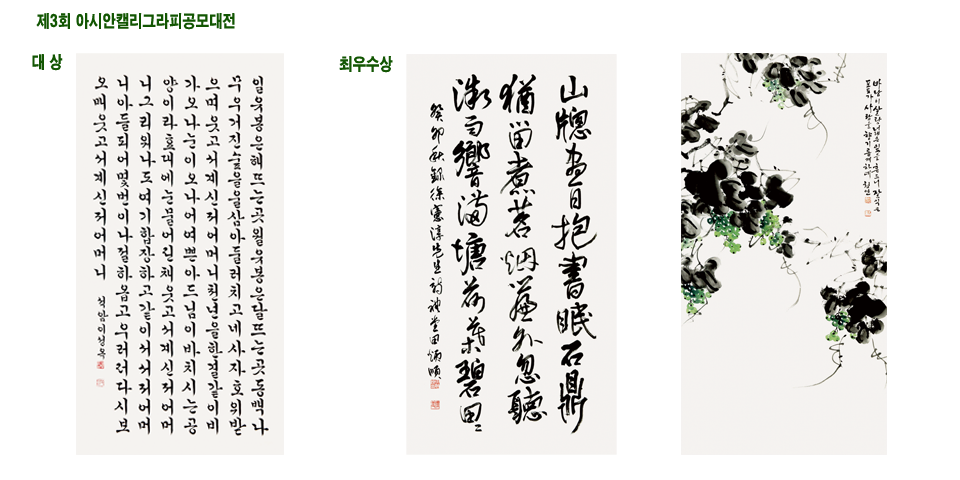 제3회 아시안캘리그라피공모대전
대 상
일웃봉은해뜨는곳월웃봉은달뜨는곳동백나
무우거진숲들을삼아둘러치고네사자호위받
으며웃고서계신저어머니천년을한결같이비
가오나눈이오나어여쁜아드님이바치시는공
양이라효대에눈물어린채웃고서계신저어머
니그리워나도여기합장하고같이서서저어머
니아들되어몇번이나절하옵고우러러다시보
오매웃고서계신저어머니
석암이정옥
최우수상
山牕盡日抱書眠石鼎
猶留煮茗烟簾外忽聽
微雨響滿塘荷葉碧田〻
癸卯秋錄徐憲淳先生詩 堂田炳
바람이 살랑 잎을 흔드니 잘익은